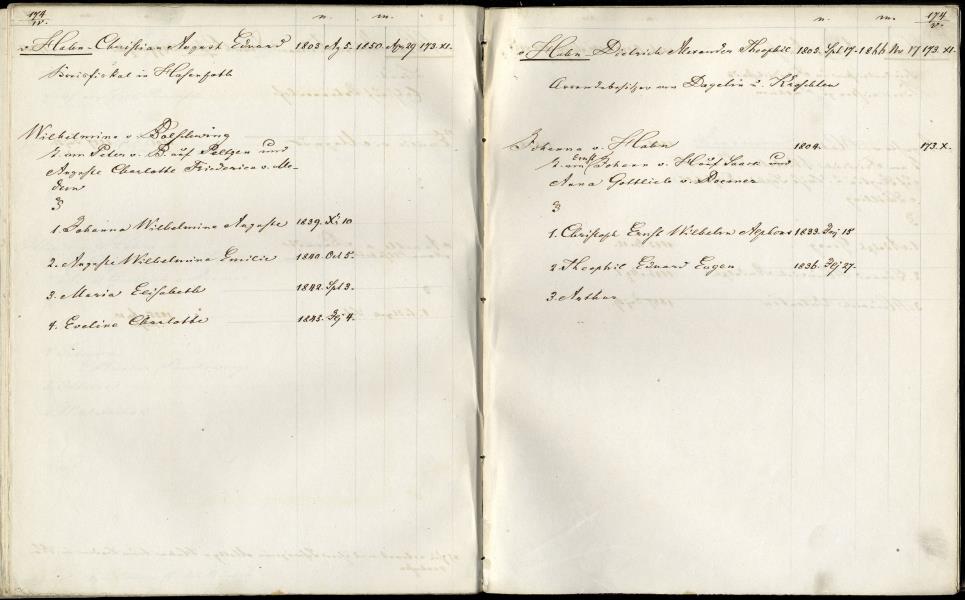 174
IV.
n. m.
v. Hahn - Christian August Eduard 1803 Ag 5. 1850 Apr 29 173. XI.
Kreisfiskal in Hasenpoth
Wilhelmine v. Bolschwing
t. von Peter v. B. auf Pelzen und
Auguste Charlotte Friederica v. Me-
dem
1. Johanna Wilhelmine Auguste 1839. Xi 10
2. Auguste Wilhelmine Emilie 1840. Oct 5.
3. Maria Elisabeth 1842. Spt 3.
4. Eveline Charlotte 1845. Fbj 4.
174
V.
n. m.
v. Hahn - Dietrich Alexander Theophil 1805. Spt 17 - 1866 Nv 17 173. XI.
Arrendebesitzer von Dogeln u.
Johanna v. Hahn 1804. 173. X.
t. von Ernst Johann v. H auf Saack und
Anna Gottlieb v. Doerner
1. Christoph Ernst Wilhelm Alphons 1833. 18
2. Theophil Eduard Eugen 1836. 27.
3. Arthur